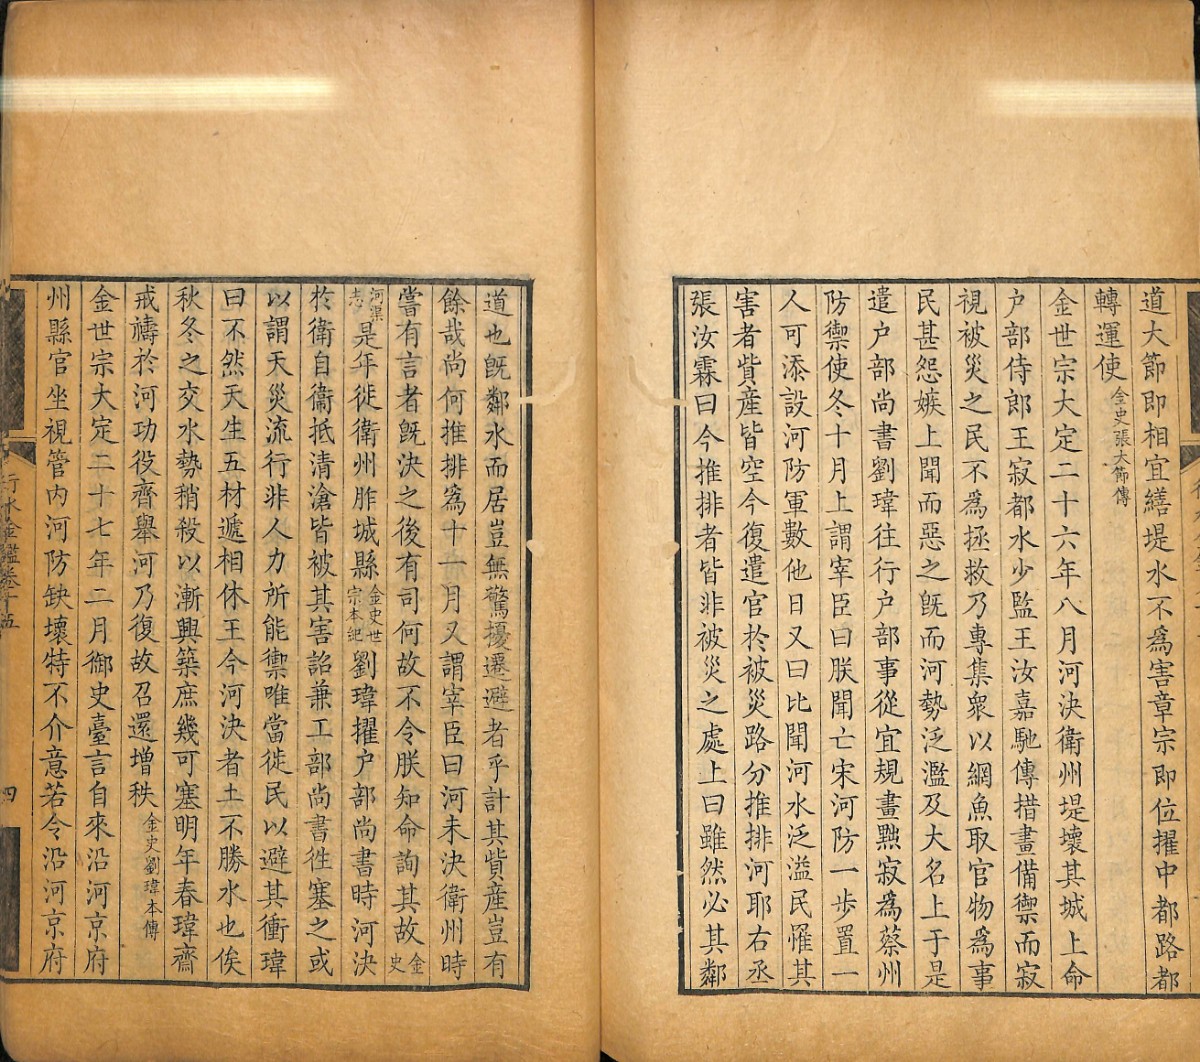 道大節即相宜繕堤水不為害章宗即位擢中都路都
轉運使金史張大節傳
金世宗大定二十六年八月河決衛州堤壞其城上命
户部侍郎王寂都水少監王汝嘉馳傳措畫備禦而寂
視被災之民不為拯救乃專集衆以網魚取官物為事
民甚怨嫉上聞而惡之既而河勢泛濫及大名上于是
遣户部尚書劉瑋往行户部事從宜規畫黜寂為蔡州
防禦使冬十月上謂宰臣曰朕聞亡宋河防一歩置一
人可添設河防軍數他日又曰比聞河水泛溢民罹其
害者貲産皆空今復遣官於被災路分推排河耶右丞
張汝霖曰今推排者皆非被災之處上曰雖然必其鄰
道也既鄰水而居豈無驚擾遷避者乎計其貲産豈有
餘哉尚何推排為十一月又謂宰臣曰河未決衛州時
嘗有言者既決之後有司何故不令朕知命詢其故金史
河渠志是年徙衛州胙城縣金史世宗本紀劉瑋擢户部尚書時河決
於衛自衛抵清滄皆被其害詔兼工部尚書徃塞之或
以謂天災流行非人力所能禦唯當徙民以避其衝瑋
曰不然天生五材遞相休王今河決者土不勝水也俟
秋冬之交水勢稍殺以漸興築庶幾可塞明年春瑋齋
戒禱於河功役齊舉河乃復故召還增秩金史劉瑋本傳
金世宗大定二十七年二月御史臺言自來沿河京府
州縣官坐視管内河防缺壞特不介意若令沿河京府
行水金鑑卷十五
四